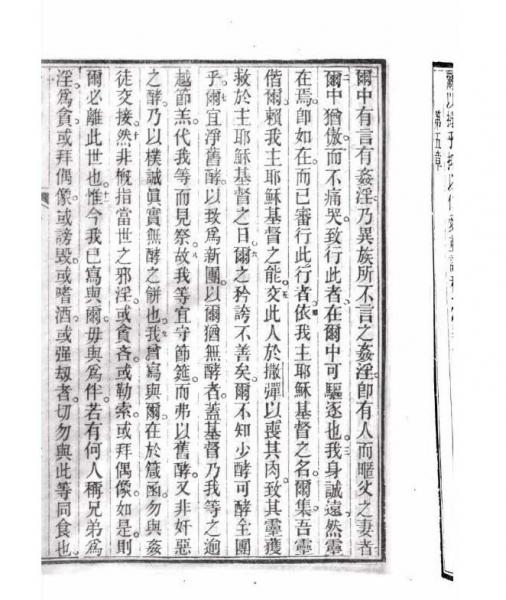 第五章
爾中有言有姦淫。乃異族所不言之姦淫。卽有人而父之妻者
爾中猶傲而不痛哭。致行此者在爾中可驅逐也。我身誠遠然靈
在焉。卽如在而已審行此行者。依我主耶穌基督之名。爾集吾靈
偕爾賴我主耶穌基督之能。交此人於撒彈以喪其肉。致其靈獲
救於主耶穌基督之日。爾之矜誇不善矣。爾不知少酵可酵全團
乎。爾宜淨舊酵。以致爲新團。以爾猶無酵者。蓋基督乃我等之逾
越節羔。代我等而見祭。故我等宜守節筵。而弗以舊酵。又非奸惡
之酵。乃以樸誠眞實無酵之餅也。我曾寫與爾在於箋函。勿與姦
徒交接。然非槪指當世之邪淫。或貪吝。或勒索。或拜偶像。如是則
爾必離此世也。惟今我已寫與爾。毋與爲伴。若有何人稱兄弟爲
淫。爲貪。或拜偶像。或謗毀。或嗜酒。或强刼者。切勿與此等同食也。